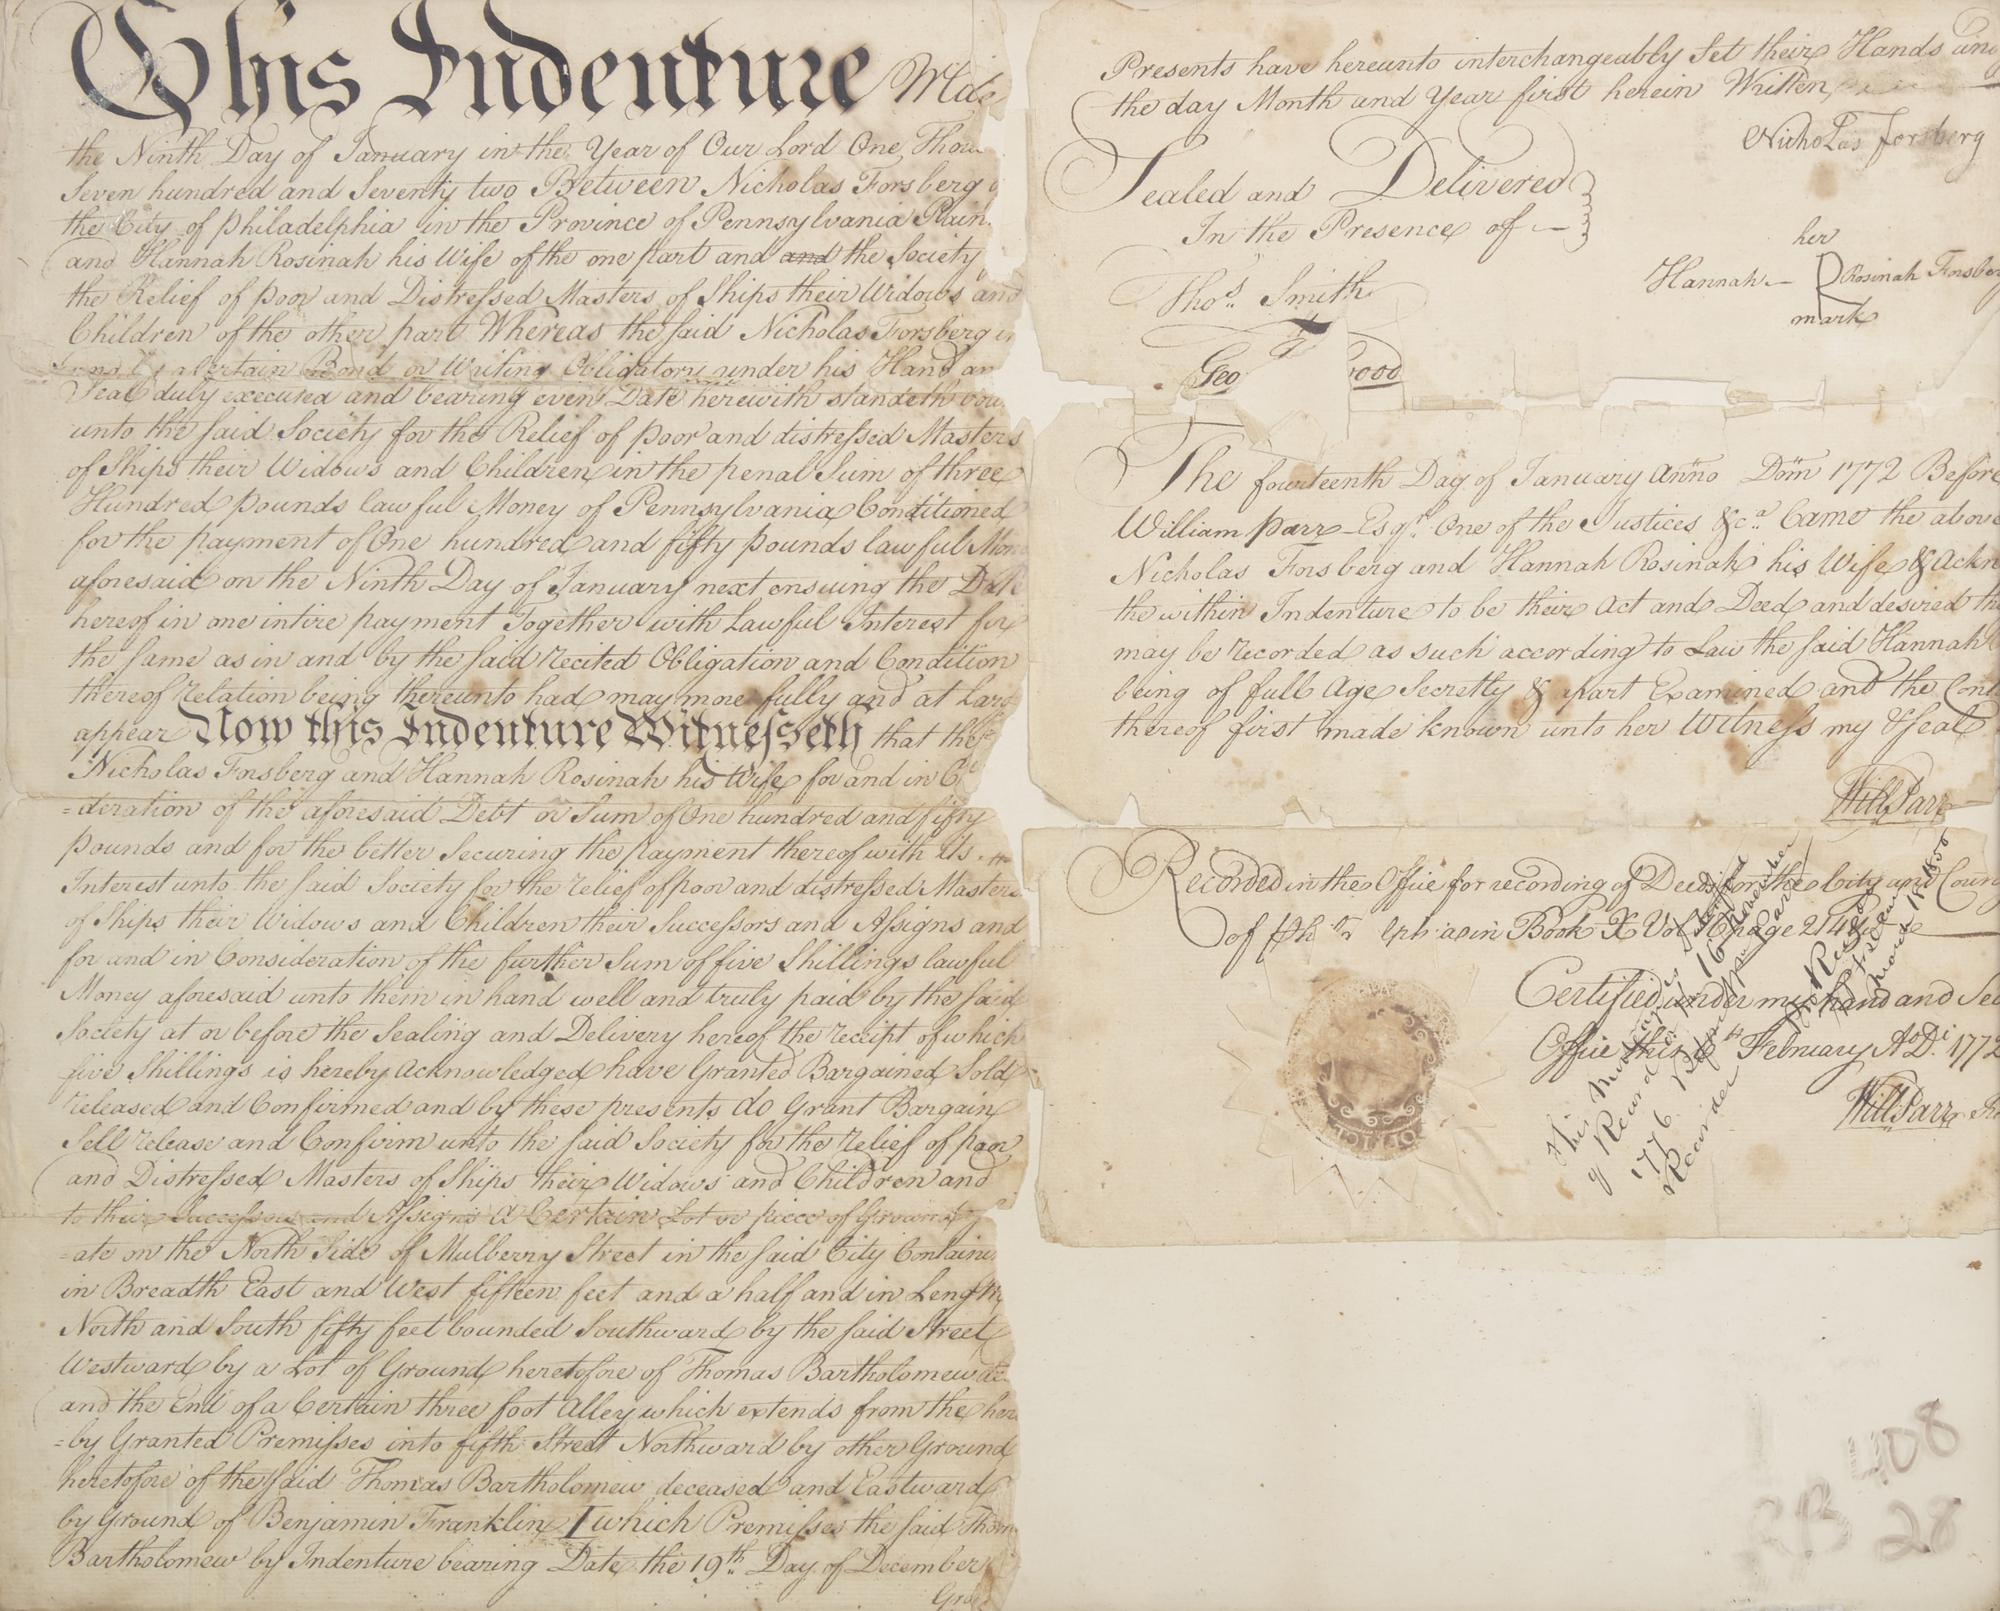 This Indenture Made
the Ninth Day of January in the Year of Our Lord One Thou
Seven hundred and Seventy two Between Nicholas Forsberg
the City of Philadelphia in the Province of Pennsylvania
and Hannah Rosinah his Wife of the one part and and the Society
the Relief of poor and Distressed Masters of Ships their Widows and
Children of the other part Whereas the said Nicholas Forsberg in
a Certain Bond or Writing Obligatory under his Hand an
Seal duly executed and bearing even Date herewith standeth bou
unto the said Society for the Relief of poor and distressed Masters
of Ships their Widows and Children in the penal Sum of three
Hundred pounds lawful Money of Pennsylvania Conditioned
for the payment of One hundred and fifty pounds lawful Mon
aforesaid on the Ninth Day of January next ensuing the Date
hereof in one intire payment Together with Lawful Interest for
the same as in and by the said recited Obligation and Condition
thereof relation being thereunto had may more fully and at Larg
appear Now this Indenture Witnesseth that the
Nicholas Forsberg and Hannah Rosinah his Wife for and in
=deration of the aforesaid Debt or Sum of One hundred and fifty
pounds and for the better Securing the payment thereof with its
Interest unto the said Society for the relief of poor and distressed Masters
of Ships their Widows and Children their Successors and Assigns and
for and in Consideration of the further Sum of five Shillings lawful
Money aforesaid unto them in hand well and truly paid by the said
Society at or before the Sealing and Delivery hereof the receipt of which
five Shillings is hereby Acknowledged have Granted Bargained Sold
released and Confirmed and by these presents do Grant Bargain
Sell release and Confirm unto the said Society for the relief of poor
and Distressed Masters of Ships their Widows and Children and
to their Successors and Assigns A Certain Lot or piece of Ground
=ate on the North Side of Mulberry Street in the said City Containi
in Breadth East and West fifteen feet and a half and in Length
North and South fifty feet bounded Southward by the said Street
Westward by a Lot of Ground heretofore of Thomas Bartholomew
and the End of a Certain three foot Alley which extends from the her
=by Granted Premisses into fifth Street Northward by other Ground
heretofore of the said Thomas Bartholomew deceased and Eastward
by Ground of Benjamin Franklin which Premisses the said Thom
Bartholomew by Indenture bearing Date the 19th Day of December
Presents have hereunto interchangeably Set their Hands and
the day Month and Year first herein Written
Nicholas Forsberg
Sealed and Delivered
In the Presence of
her
Hannah Rosinah Forsber
mark
Thos Smith
Geo Good
The fourteenth Day of January Anno Dom 1772 Before
William Parr Esqr. One of the Justices &ca. Came the above
Nicholas Forsberg and Hannah Rosinah his Wife & Ackn
the within Indenture to be their Act and Deed and desired the
may be recorded as such according to Law the said Hannah
being of full Age Secretly & apart Examined and the Cont
thereof first made known unto her Witness my & Seal
Will Parr
Recorded in the Office for recording of Deeds for the City and Coun
of in Book X Vol page 214
Certified under my hand and Sea
Office this February Ao Di 1772
Will Parr
This Mortgage is
of Record 16 November
1776
Recorder
408
28